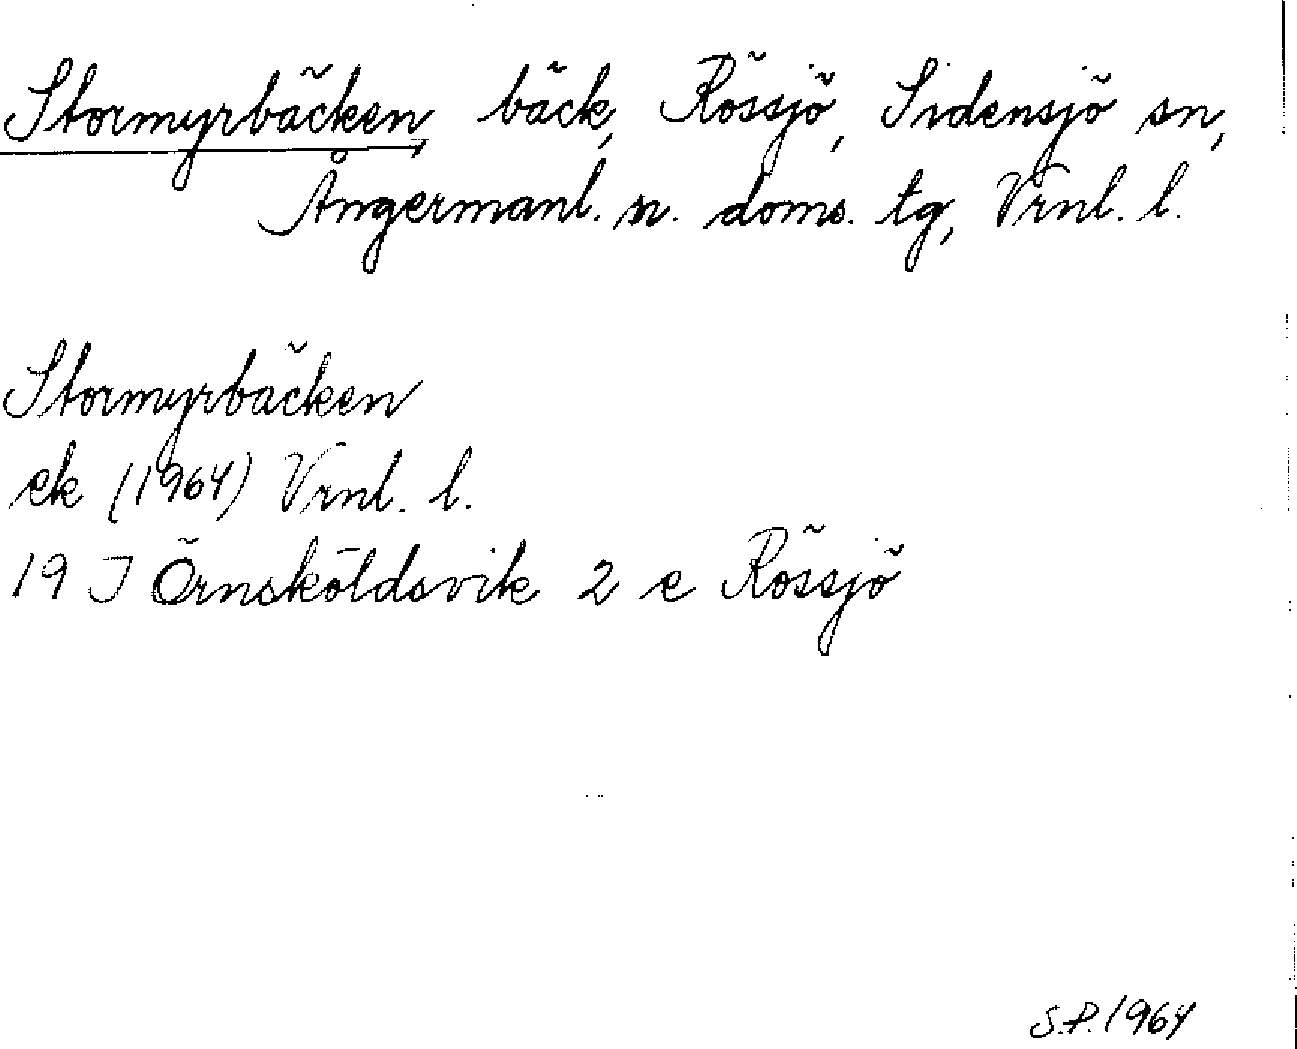 Stormyrbäcken bäck, Rössjö, Sidensjö sn,
Ångermanl. n. doms. tg, Vrnl. l.
Stormyrbäcken
ek (1964) Vrnl. l.
19 J Örnsköldsvik 2 e Rössjö
S.P. 1964